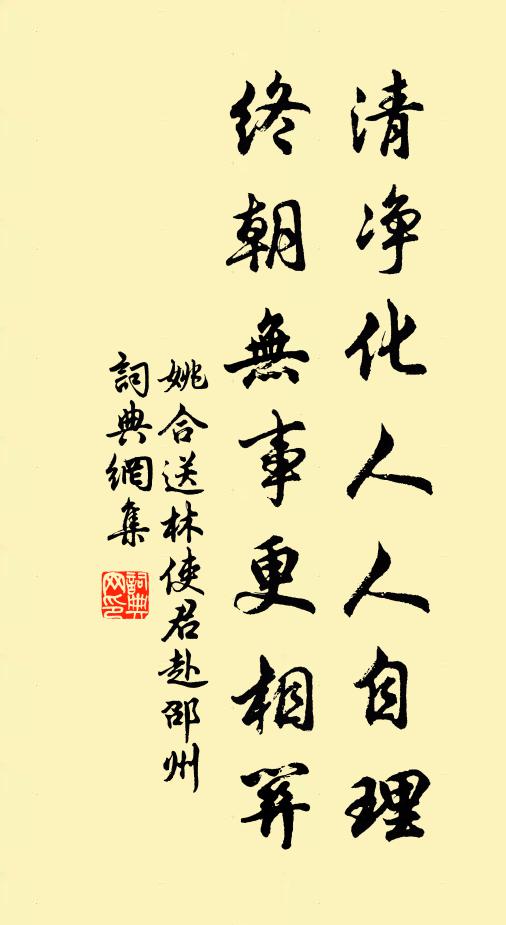 清净化人人自理
終朝無事更相關
姚合送林使君赴邵州
詞典網集
詞典网印